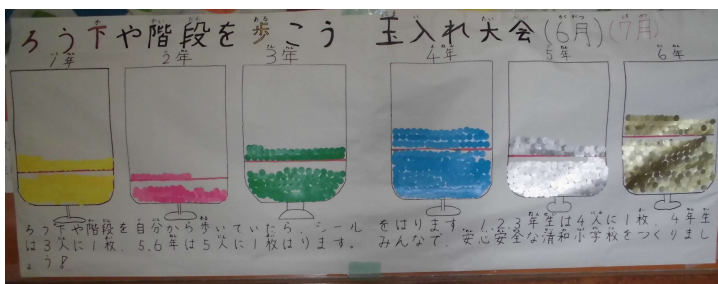 ろう下や階段を歩こう 玉入れ大会(6月)(7月)
1年 2年 3年 4年 5年 6年
ろう下や階段を自分から歩いていたら、シールをはります。1.2.3年生は4人に1枚、4年生
は3人に1枚、5.6年は5人に1枚はります。みんなで、安心安全な清和小学校をつくりまし
ょう!